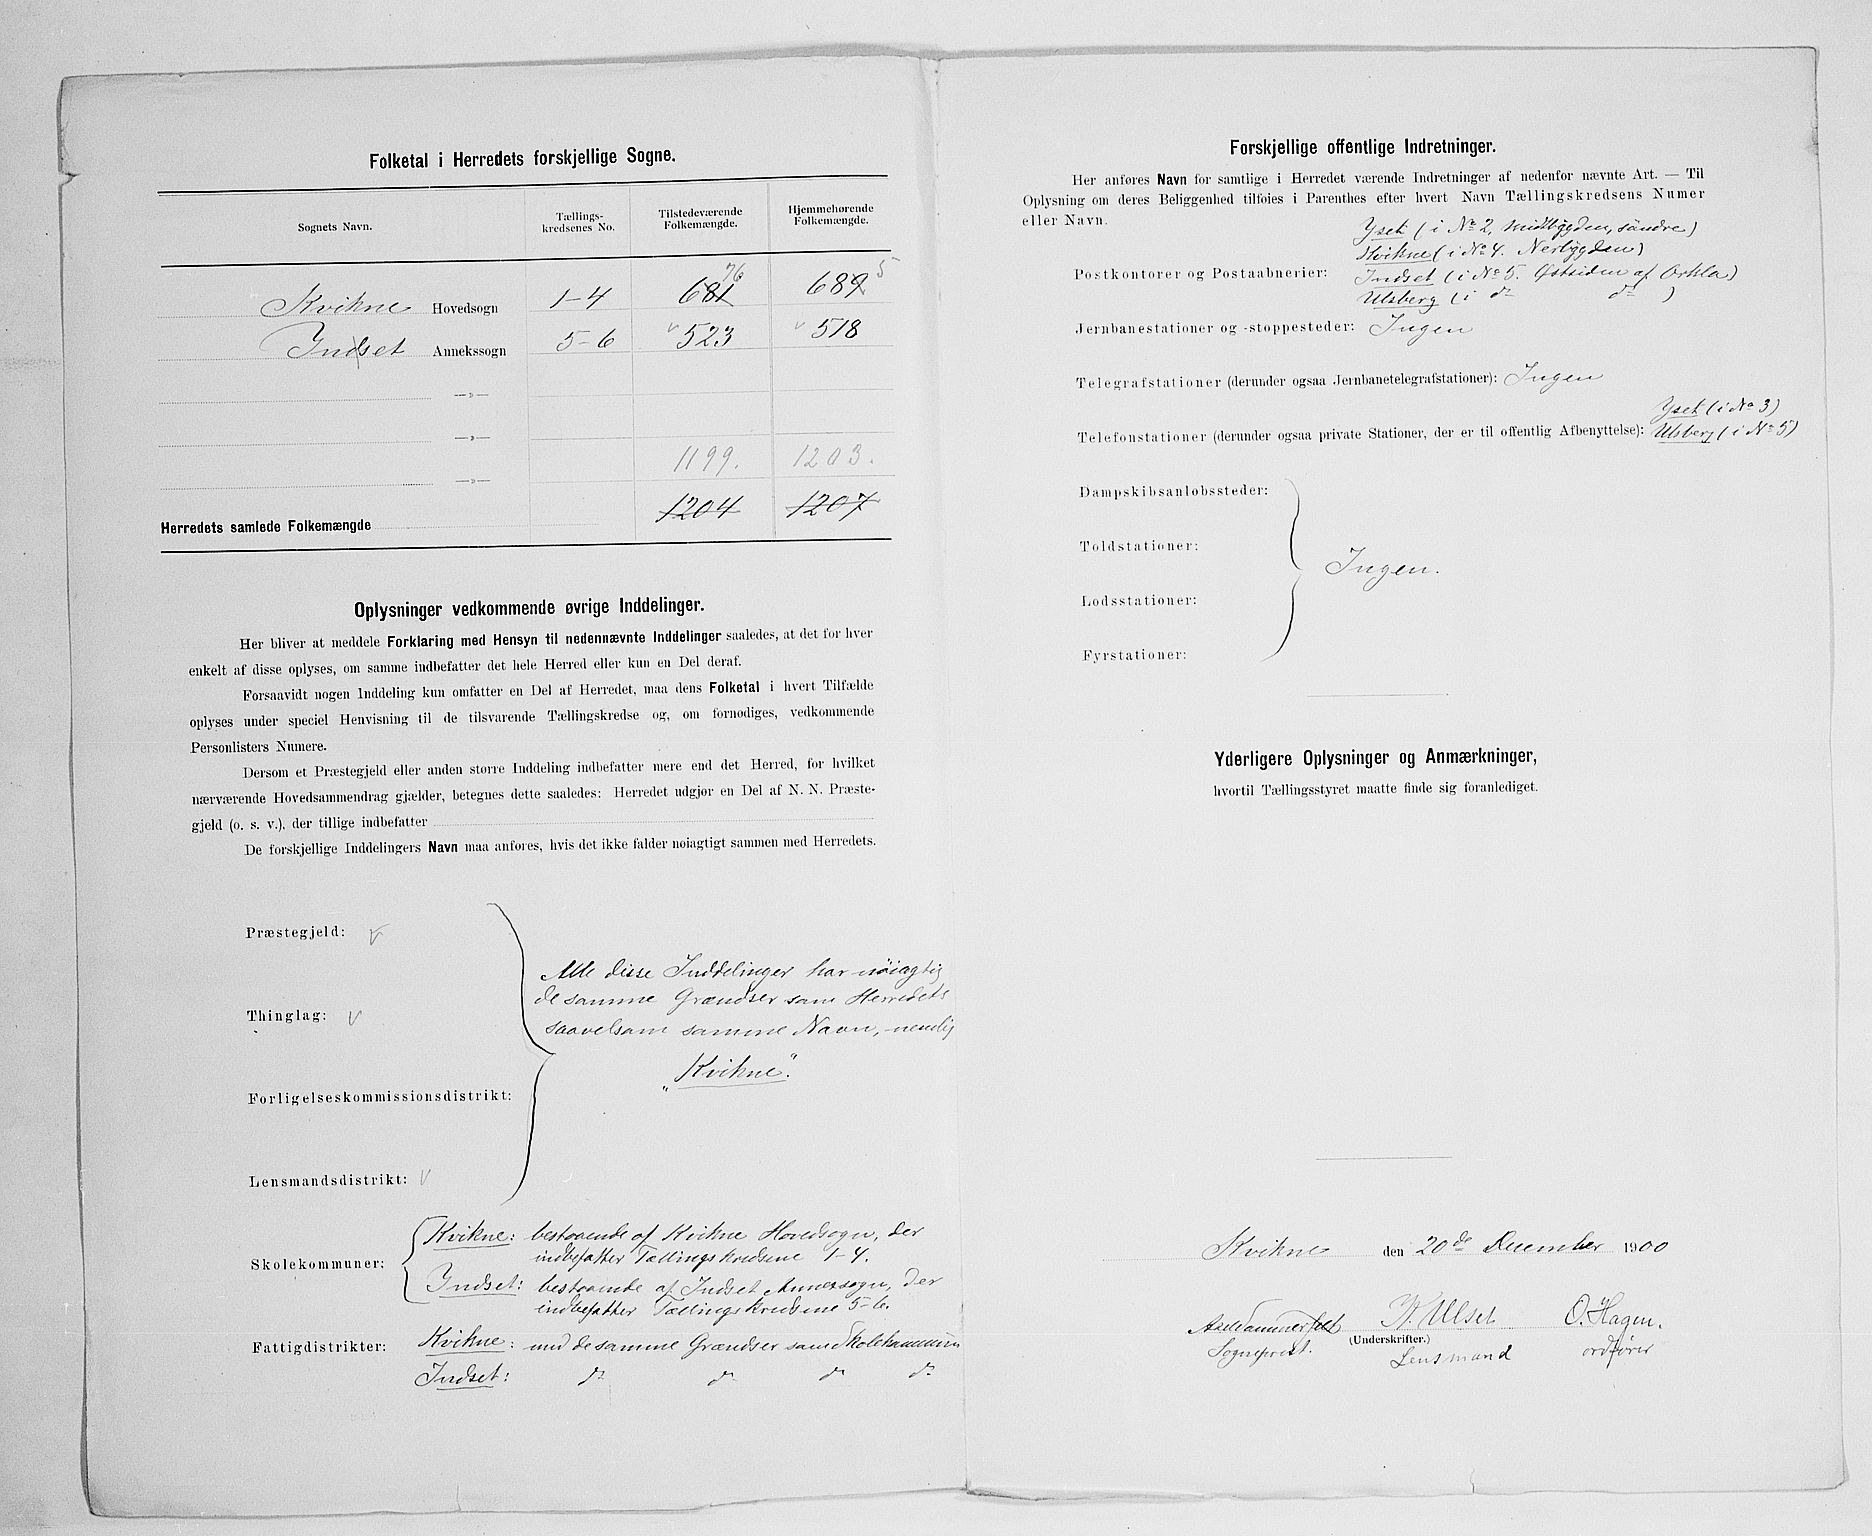 Folketal i Herredets forskjellige Sogne.
Sognets Navn.
Tællings-
kredsenes No.
Tilstedeværende
Folkemængde.
Hjemmehørende
Folkemængde.
Kvikne Hovedsogn 1-4 681 76 689 5
Indset Annekssogn 5-6 v 523 v 518
—»—
—»—
1199. 1203.
—»—
Herredets samlede Folkemængde 1204 1207
Oplysninger vedkommende øvrige Inddelinger.
Her bliver at meddele Forklaring med Hensyn til nedennævnte Inddelinger saaledes, at det for hver
enkelt af disse oplyses, om samme indbefatter det hele Herred eller kun en Del deraf.
Forsaavidt nogen Inddeling kun omfatter en Del af Herredet, maa dens Folketal i hvert Tilfælde
oplyses under speciel Henvisning til de tilsvarende Tællingskredse og, om fornødiges, vedkommende
Personlisters Numere.
Dersom et Præstegjeld eller anden større Inddeling indbefatter mere end det Herred, for hvilket
nærværende Hovedsammendrag gjælder, betegnes dette saaledes: Herredet udgjør en Del af N. N. Præste-
gjeld (o. s. v.), der tillige indbefatter
De forskjellige Inddelingers Navn maa anføres, hvis det ikke falder nøiagtigt sammen med Herredets.
Præstegjeld: v
Thinglag: v
Forligelseskommissionsdistrikt:
Lensmandsdistrikt: v
Alle disse Inddelinger har nöiagtig
de samme Grændser som Herredets
saavelsom samme Navn, nemlig
„Kvikne“.
Skolekommuner:
Kvikne: bestaaende af Kvikne Hovedsogn, der
indbefatter Tællingskredsene 1-4.
Indset: bestaaende af Indset Annexsogn, der
indbefatter Tællingskredsene 5-6.
Fattigdistrikter: Kvikne: med de samme Grændser som Skolekommunen
Indset: do do do do
Forskjellige offentlige Indretninger.
Her anføres Navn for samtlige i Herredet værende Indretninger af nedenfor nævnte Art. — Til
Oplysning om deres Beliggenhed tilføies i Parenthes efter hvert Navn Tællingskredsens Numer
eller Navn.
Postkontorer og Postaabnerier:
Yset (i No 2, Midtbygden, söndre)
Kvikne (i No 4. Nerbygden)
Indset (i No 5. Östsiden af Orkla)
Ulsberg (i do do )
Jernbanestationer og -stoppesteder: Ingen
Telegrafstationer (derunder ogsaa Jernbanetelegrafstationer): Ingen
Yset (i No 3)
Telefonstationer (derunder ogsaa private Stationer, der er til offentlig Afbenyttelse): Ulsberg (i No 5)
Dampskibsanløbssteder:
Toldstationer:
Ingen.
Lodsstationer:
Fyrstationer:
Yderligere Oplysninger og Anmærkninger,
hvortil Tællingsstyret maatte finde sig foranlediget.
Kvikne den 20de December 1900
K. Ulset O. Hagen.
(Underskrifter.)
Sogneprest. Lensmand ordfører